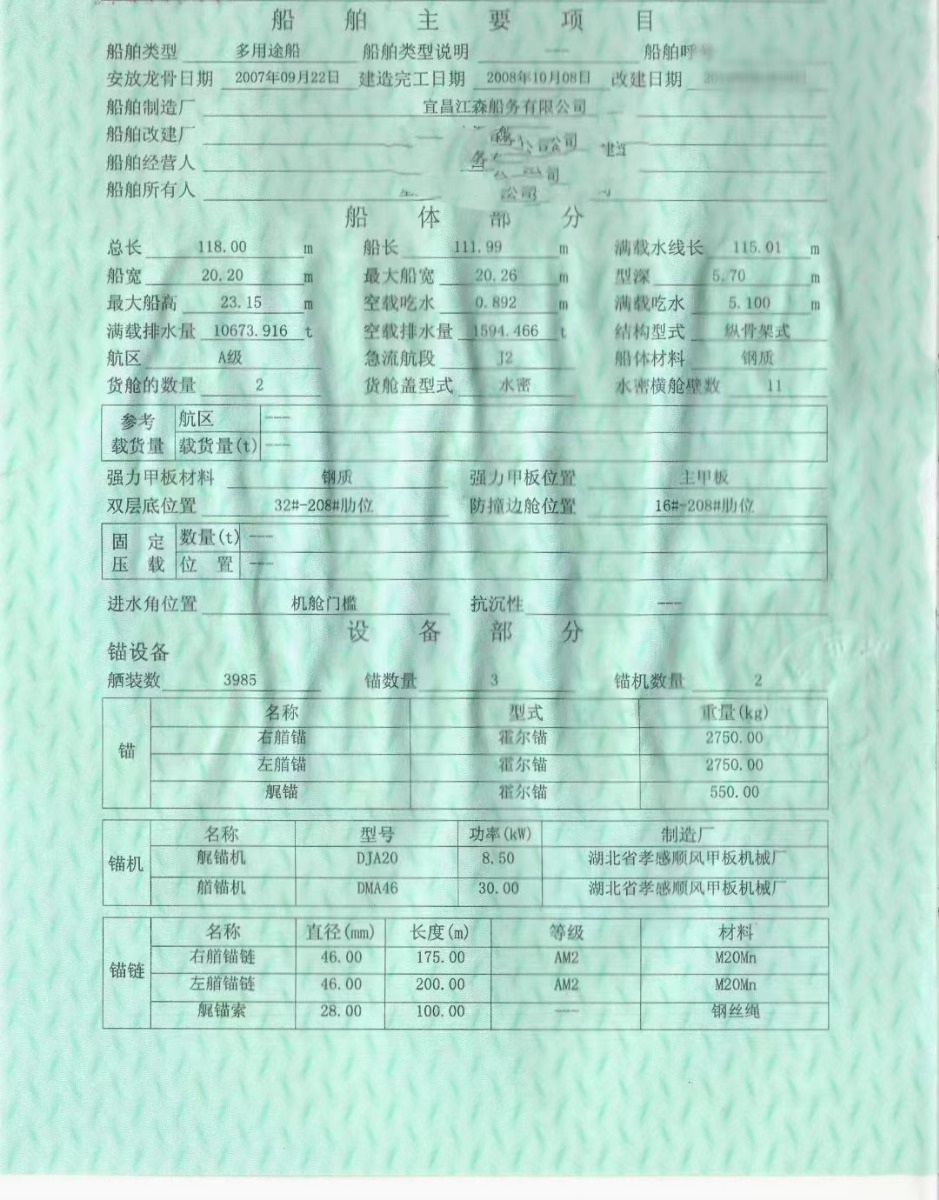 船舶主要项目
船舶类型 多用途船 船舶类型说明 --- 船舶呼号
安放龙骨日期 2007年09月22日 建造完工日期 2008年10月08日 改建日期
船舶制造厂 宜昌江森船务有限公司
船舶改建厂
船舶经营人
船舶所有人
船体部分
总长 118.00 m 船长 111.99 m 满载水线长 115.01 m
船宽 20.20 m 最大船宽 20.26 m 型深 5.70 m
最大船高 23.15 m 空载吃水 0.892 m 满载吃水 5.100 m
满载排水量 10673.916 t 空载排水量 1594.466 t 结构型式 纵骨架式
航区 A级 急流航段 J2 船体材料 钢质
货舱的数量 2 货舱盖型式 水密 水密横舱壁数 11
参考 航区 ---
载货量 载货量(t) ---
强力甲板材料 钢质 强力甲板位置 主甲板
双层底位置 32#-208#肋位 防撞边舱位置 16#-208#肋位
固定 数量(t) ---
压载 位置 ---
进水角位置 机舱门槛 抗沉性 ---
设备部分
锚设备
舾装数 3985 锚数量 3 锚机数量 2
名称 型式 重量(kg)
右艏锚 霍尔锚 2750.00
锚
左艏锚 霍尔锚 2750.00
艉锚 霍尔锚 550.00
名称 型号 功率(kW) 制造厂
锚机
艉锚机 DJA20 8.50 湖北省孝感顺风甲板机械厂
艏锚机 DMA46 30.00 湖北省孝感顺风甲板机械厂
名称 直径(mm) 长度(m) 等级 材料
右艏锚链 46.00 175.00 AM2 M20Mn
锚链
左艏锚链 46.00 200.00 AM2 M20Mn
艉锚索 28.00 100.00 --- 钢丝绳